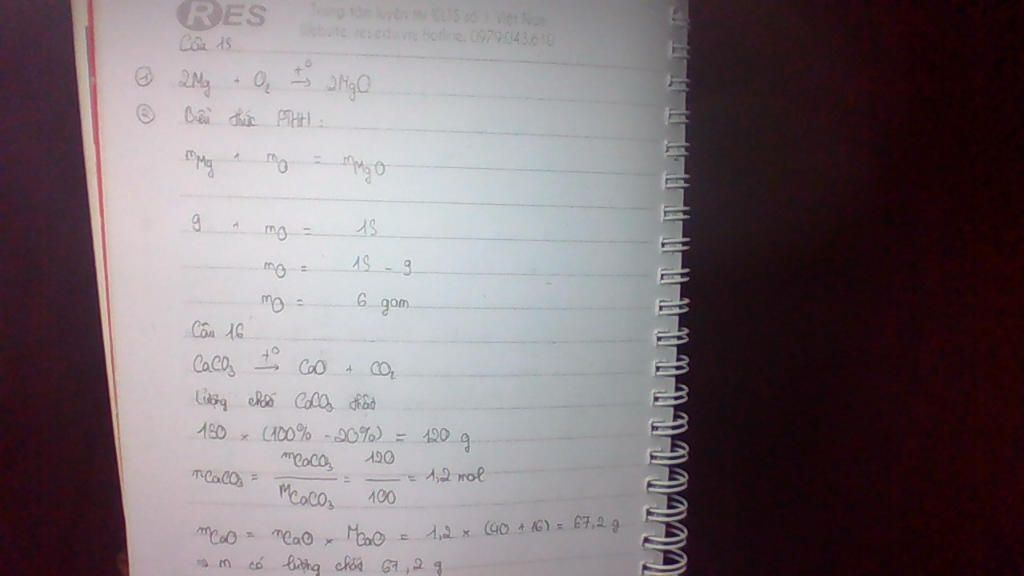 RES Trung tâm luyện thi IELTS số 1 Việt Nam
Website: res.edu.vn Hotline: 0979.043.610
Câu 15
① 2Mg + O₂ t° → 2MgO
② Biểu thức PTHH:
mMg + mO = mMgO
9 + mO = 15
mO = 15 - 9
mO = 6 gam
Câu 16
CaCO₃ t° → CaO + CO₂
Lượng chất CaCO₃
150 × (100% - 20%) = 120 g
nCaCO₃ = mCaCO₃ / MCaCO₃ = 120 / 100 = 1,2 mol
mCaO = nCaO × MCaO = 1,2 × (40 + 16) = 67,2 g
⇒ m có lượng chất 67,2 g